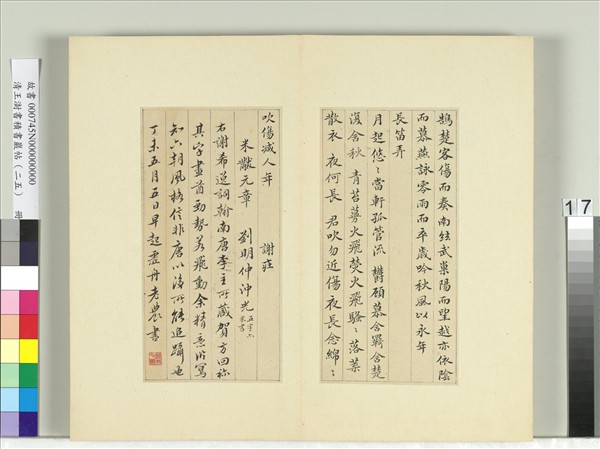 鵠楚客傷而奏南絃武巢陽而望越亦依陰
而慕燕詠零雨而卒歲吟秋風以永年
長笛弄
月起悠〻當軒孤管流鬱顧慕含羈含楚
復含秋青苔蔓火飛熒火飛騷〻落葉
散衣夜何長君吹勿近傷夜長念綿〻
吹傷減人年
謝莊
米黻元章 劉明仲沖光
右謝希逸詞翰南唐李主所藏賀方回稱
其字畫首勁勢若飛動余精意臨寫
知六朝風格信非唐以後所能追躡也
丁未五月五日早起虛舟老農書
故書000745N000000000
清王澍書積書巖帖(二五) 冊
17